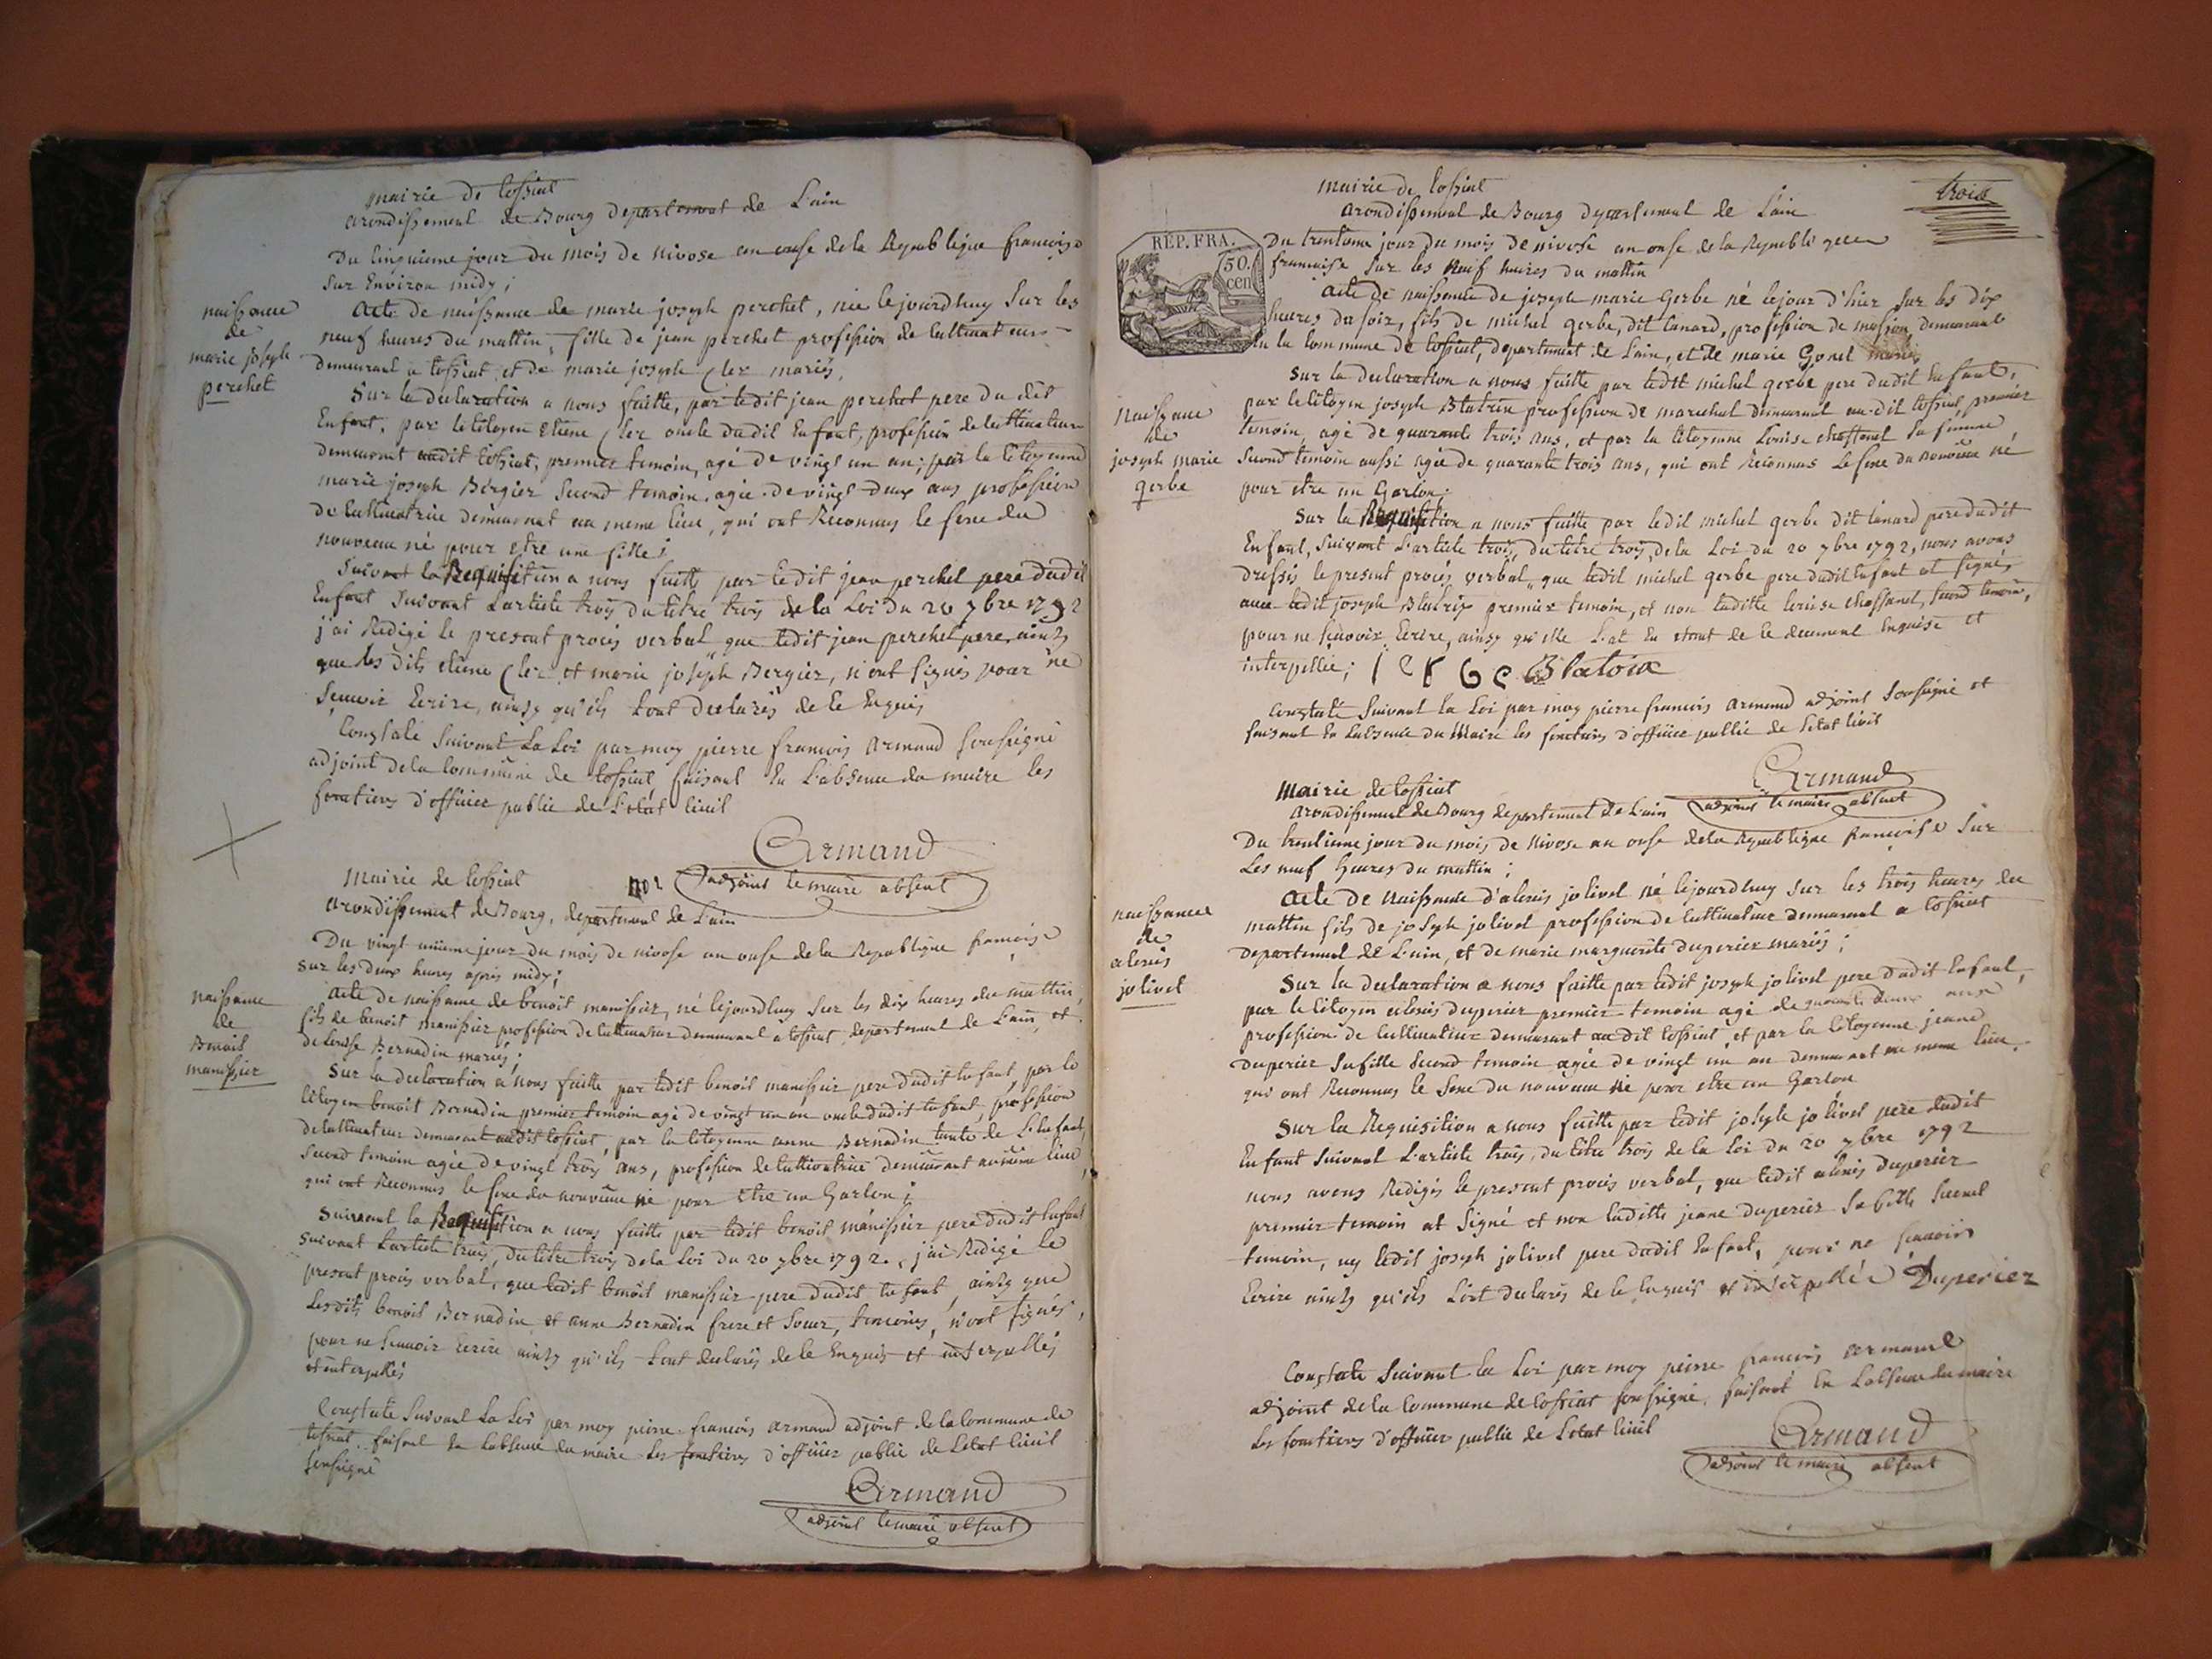 mairie de tossiat
arondissement de Bourg departement de L'ain
Du cinquieme jour du mois de nivose an onse de la Republique françoise
sur Environ midy ;
naissance
de
marie joseph
perchet
acte de naissance de marie joseph perchet, née lejourdhuy sur les
neuf heures du mattin, fille de jean perchet profession de cultivateur
demeurant a tossiat et de marie joseph Cler mariés,
Sur la declaration a nous faitte, par ledit jean perchet pere du dit
Enfant, par le citoyen etiene Clerc oncle dudit Enfant, profession de cultivateur
demeurant audit tossiat, premier temoin, agé de vingt un an; par la citoyenne
marie joseph Bergier second temoin, agée de vingt deux ans profession
de cultivatrice demeurant au meme lieu, qui ont Reconnus le sexe du
nouveau né pour etre une fille ;
Suivant la Requisition a nous faitte par ledit jean perchet pere dudit
Enfant Suivant L'article trois du titre trois de la Loi du 20 7bre 1792
j'ai Redigé le present procés verbal, que ledit jean perchet pere, ainsy
que les dits etiene Clerc et marie joseph Bergier, n'ont signés pour ne
sçavoir Ecrire, ainsy qu'ils L'ont declarés de ce Enquis
Constaté suivant La Loi par moy pierre francois armand soussigné
adjoint de la Commune de tossiat faisant En L'absence du maire les
fonctions d'officier public de L'etat civil
Armand
adjoint le maire absent
mairie de tossiat
arondissement de Bourg, departement de L'ain
Du vingt unieme jour du mois de nivose an onse de la Republique françoise
sur les deux heures après midy ;
naissance
de
Benoit
manissier
acte de naissance de benoit manissier, né lejourdhuy sur les dix heures du mattin,
fils de benoit manissier profession de cultivateur demeurant a tossiat, departement de L'ain, et
de Louise Bernadin mariés ;
Sur la declaration a nous faitte par ledit benoit manissier pere dudit Enfant, par le
citoyen benoit Bernadin premier temoin agé de vingt un an oncle dudit Enfant, profession
de cultivateur demeurant audit tossiat, par la citoyenne anne Bernadin tante de L'Enfant,
second temoin agée de vingt trois ans, profession de cultivatrice demeurant au meme lieu,
qui ont Reconnus le sexe du nouveau né pour etre un Garcon ;
Suivant la Requisition a nous faitte par ledit benoit manissier pere dudit Enfant
suivant L'article trois, du titre trois de la Loi du 20 7bre 1792. j'ai Redigé le
present procés verbal, que ledit benoit manissier pere dudit Enfant, ainsy que
Lesdits benoit Bernadin et anne Bernadin frere et soeur, temoins, n'ont signés,
pour ne scavoir Ecrire ainsy qu'ils L'ont declarés de ce Enquis et interpellés
et interpellés
Constaté suivant La Loi par moy pierre francois armand adjoint de la Commune de
tossiat. faisant En L'absence du maire Les fonctions d'officier public de L'etat civil
soussigné
Armand
adjoint le maire absent
trois
RÉP. FRA.
50.
cen
mairie de tossiat
arondissement de Bourg departement de L'ain
Du trentieme jour du mois de nivose an onse de la Republique
francaise sur les Neuf heures du mattin
naissance
de
joseph marie
gerbe
acte de naissance de joseph marie Gerbe né le jour d'hier sur les dix
heures du soir, fils de michel gerbe, dit Canard, profession de masson demeurant
en la Commune de tossiat, departement de L'ain, et de marie Gonet mariés
Sur la declaration a nous faitte par ledit michel gerbe pere dudit Enfant,
par le citoyen joseph Blatrix profession de marechal demeurant audit tossiat, premier
temoin, agé de quarante trois ans, et par la citoyenne Louise chassanel sa femme
second temoin aussi agée de quarante trois ans, qui ont Reconnus Le sexe du nouveau né
pour etre un Garcon.
Sur la Requisition a nous faitte par ledit michel gerbe dit Canard pere dudit
Enfant, Suivant L'article trois, du titre trois de la Loi du 20 7bre 1792, nous avons
dressés le present procés verbal, que ledit michel gerbe pere dudit Enfant at signé,
avec ledit joseph Blatrix premier temoin, et non laditte Louise chassanel, second temoin,
pour ne sçavoir Ecrire, ainsy qu'elle L'at En etant de ce deument Enquise et
interpellée ; Blatrix
Constaté suivant la Loi par moy pierre francois armand adjoint soussigné et
faisant En L'absence du Maire les fonctions d'officier public de L'etat civil
Armand
adjoint le maire absent
Mairie de tossiat
arondissement de Bourg departement de L'ain
Du trentieme jour du mois de Nivose an onse de la Republique françoise sur
Les neuf heures du mattin ;
naissance
de
alexis
jolivet
acte de Naissance d'alexis jolivet né lejourdhuy sur les trois heures du
mattin fils de joseph jolivet profession de cultivateur demeurant a tossiat
departement de L'ain, et de marie marguerite duperier mariés ;
Sur la declaration a nous faitte par ledit joseph jolivet pere dudit Enfant,
par le citoyen alexis duperier premier temoin agé de quarante deux ans
profession de cultivateur demeurant audit tossiat, et par la citoyenne jeane
duperier sa fille second temoin agée de vingt un an demeurant au meme lieu.
qui ont Reconnus le sexe du nouveau né pour etre un Garcon
Sur la Requisition a nous faitte par ledit joseph jolivet pere dudit
Enfant suivant L'article trois, du titre trois de la loi du 20 7bre 1792
nous avons Redigés le present procés verbal, que ledit alexis duperier
premier temoin at signé et non laditte jeane duperier sa fille second
temoin, ny ledit joseph jolivet pere dudit Enfant, pour ne scavoir
Ecrire ainsy qu'ils L'ont declarés de ce Enquis et interpellés Duperier
Constaté suivant la Loi par moy pierre francois armand
adjoint de la Commune de tossiat soussigné, faisant En L'absence du maire
Les fonctions d'officier public de L'etat civil
Armand
adjoint le maire absent